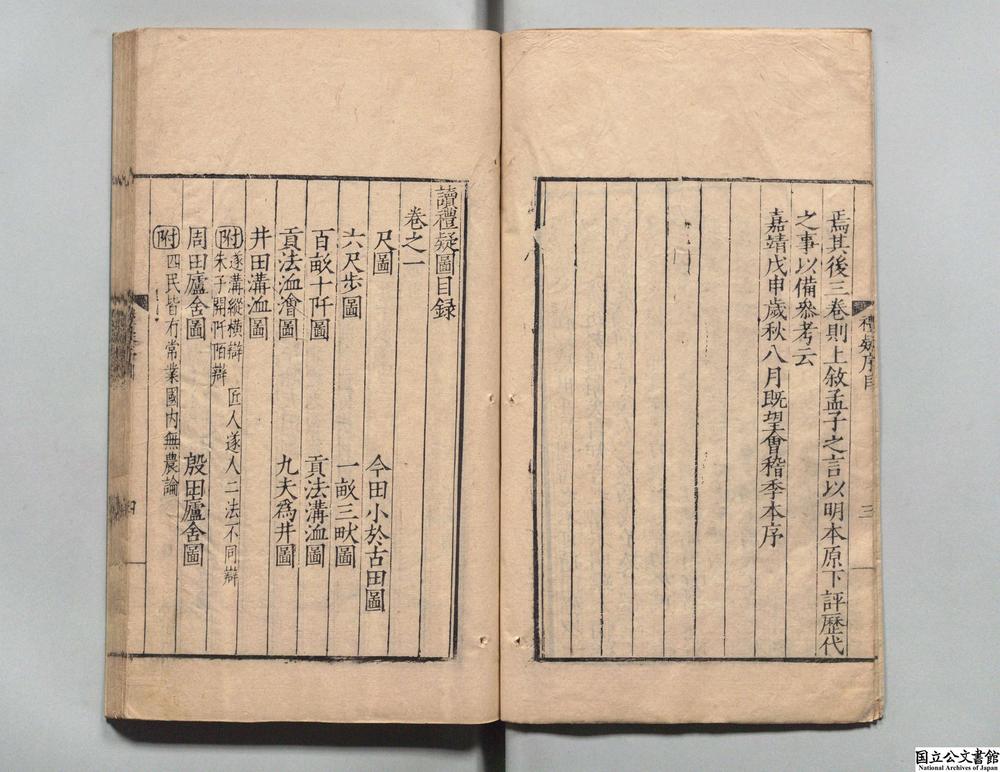 焉其後三卷則上敘孟子之言以明本原下評歷代
之事以備叅考云
嘉靖戊申歲秋八月既望會稽季本序
禮疑序目
三
讀禮疑圖目録
卷之一
尺圖 今田小於古田圖
六尺步圖 一畝三畎圖
百畝十阡圖 貢法溝洫圖
貢法洫澮圖 九夫爲井圖
井田溝洫圖
附 遂溝縱橫辯 匠人遂人二法不同辯
朱子開阡陌辯
周田廬舍圖 殷田廬舍圖
附 四民皆有常業國内無農論
四
国立公文書館
National Archives of Japan